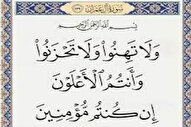 بِسْمِ اللَّهِ الرَّحْمَٰنِ الرَّحِيمِ
وَلَا تَهِنُوا۟ وَلَا تَحْزَنُوا۟
وَأَنتُمُ ٱلْأَعْلَوْنَ
إِن كُنتُم مُّؤْمِنِينَ